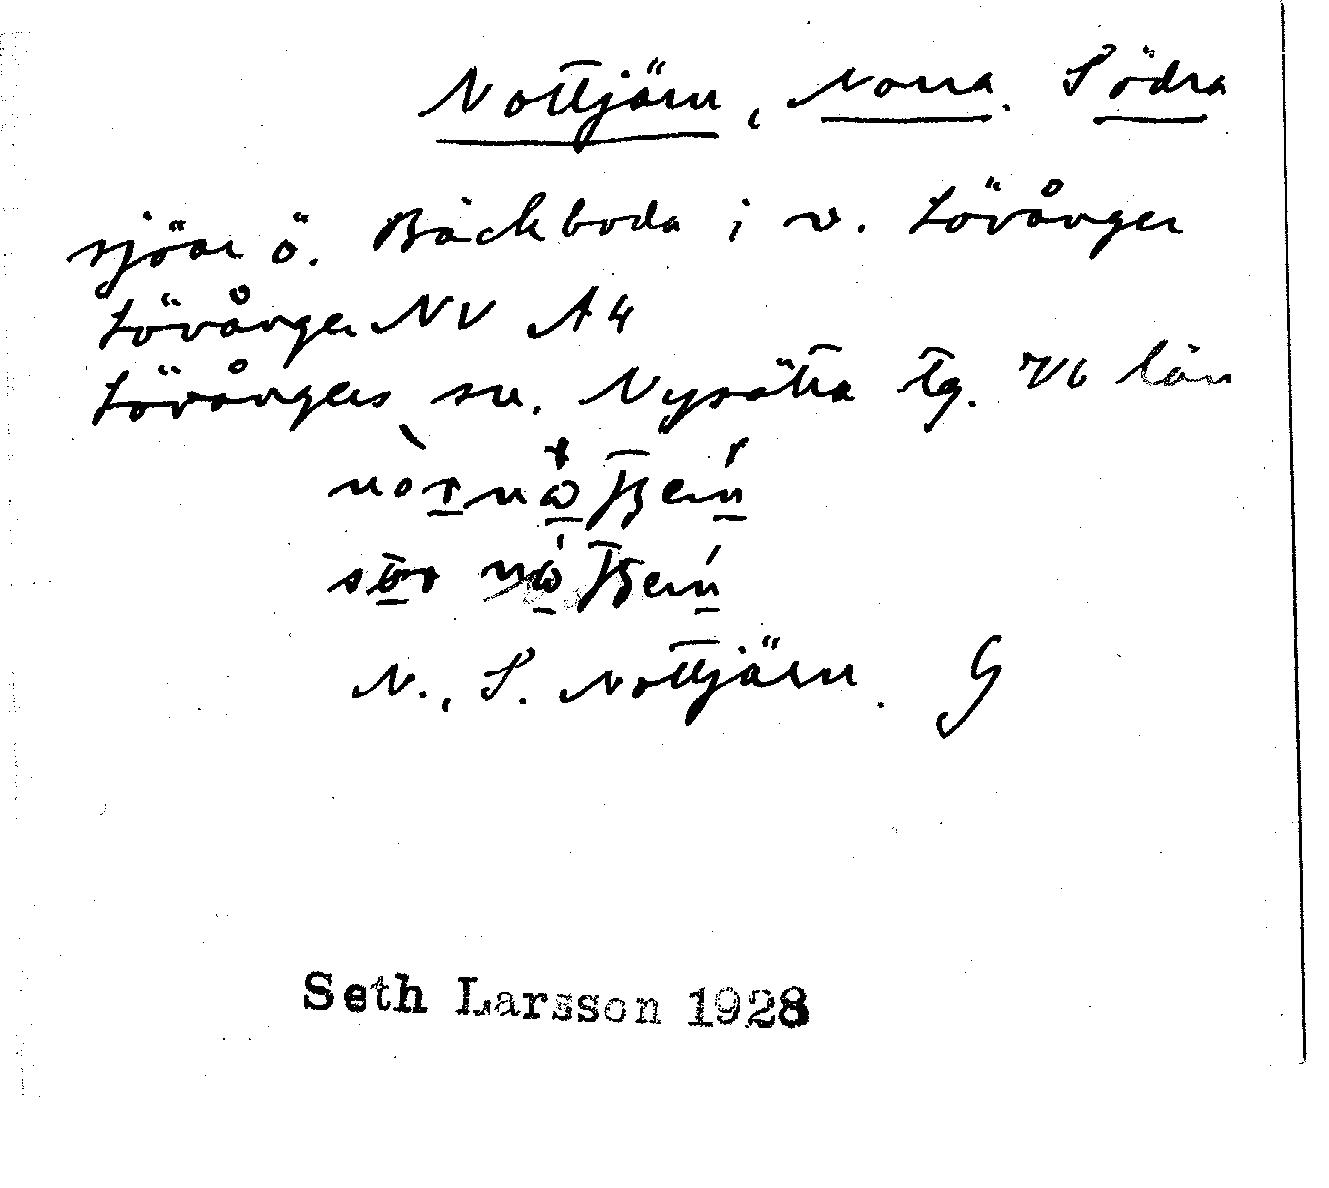 Nottjärn, Norra. Södra
sjöar ö. Bäckboda i v. Lövånger
Lövånger NV A4
Lövångers sn. Nysätra tg. Vb län
N., S. Nottjärn. G
Seth Larsson 1928